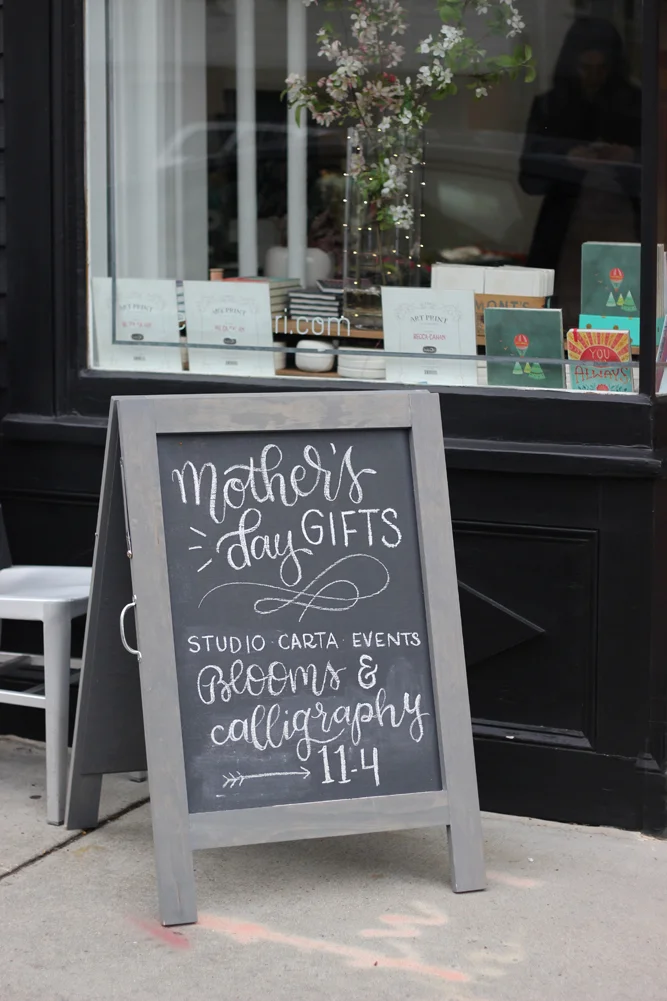 ART PRINT
ART PRINT
ri.com
ART PRINT
MONT'S
YOU
ALWAYS
Mother's
day GIFTS
STUDIO CARTA EVENTS
Blooms &
calligraphy
11-4